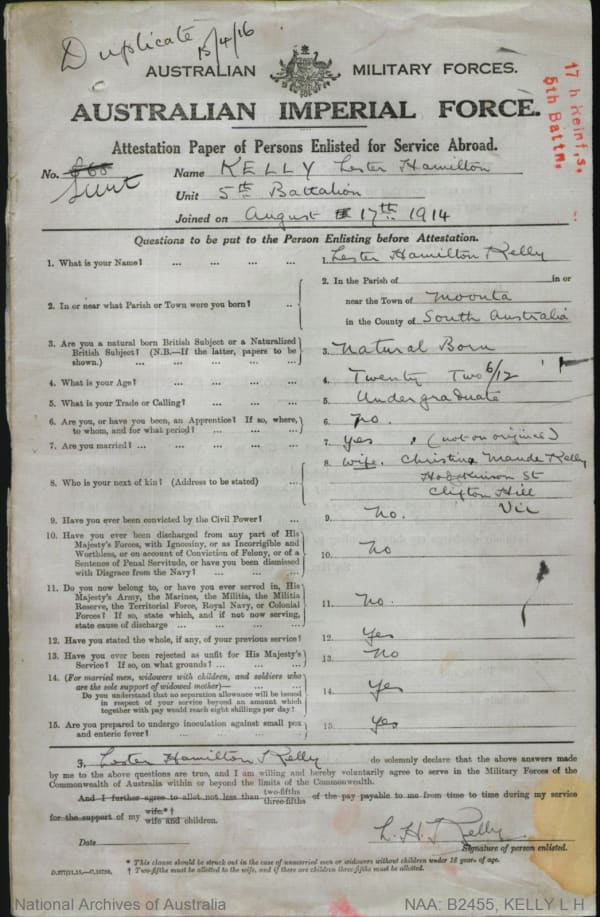 Duplicate
15/4/16
AUSTRALIAN MILITARY FORCES.
AUSTRALIAN IMPERIAL FORCE.
17th Reinf.s.
5th Battn.
Attestation Paper of Persons Enlisted for Service Abroad.
No. Name KELLY Lester Hamilton
Unit 5th Battalion
Joined on August 17th 1914
Questions to be put to the Person Enlisting before Attestation.
1. What is your Name? ... ... ... ... 1. Lester Hamilton Kelly
2. In or near what Parish or Town were you born? ... 2. In the Parish of in or
near the Town of Moonta
in the County of South Australia
3. Are you a natural born British Subject or a Naturalized
British Subject? (N.B.—If the latter, papers to be
shown.) ... ... ... ... 3. Natural Born
4. What is your Age? ... ... ... ... 4. Twenty Two 6/12
5. What is your Trade or Calling? ... ... ... 5. Undergraduate
6. Are you, or have you been, an Apprentice? If so, where,
to whom, and for what period? ... ... ... 6. No.
7. Are you married? ... ... ... ... 7. Yes (not on original)
8. Who is your next of kin? (Address to be stated) ... 8. wife. Christina Maude Kelly
Hodgkinson St
Clifton Hill
Vic
9. Have you ever been convicted by the Civil Power? ... 9. No.
10. Have you ever been discharged from any part of His
Majesty's Forces, with Ignominy, or as Incorrigible and
Worthless, or on account of Conviction of Felony, or of a
Sentence of Penal Servitude, or have you been dismissed
with Disgrace from the Navy? ... ... ... 10. No
11. Do you now belong to, or have you ever served in, His
Majesty's Army, the Marines, the Militia, the Militia
Reserve, the Territorial Force, Royal Navy, or Colonial
Forces? If so, state which, and if not now serving,
state cause of discharge ... ... ... 11. No.
12. Have you stated the whole, if any, of your previous service? 12. Yes
13. Have you ever been rejected as unfit for His Majesty's
Service? If so, on what grounds? ... ... ... 13. No
14. (For married men, widowers with children, and soldiers who
are the sole support of widowed mother)— ... ...
Do you understand that no separation allowance will be issued
in respect of your service beyond an amount which
together with pay would reach eight shillings per day? 14. Yes
15. Are you prepared to undergo inoculation against small pox
and enteric fever? ... ... ... ... 15. Yes
I, Lester Hamilton Kelly do solemnly declare that the above answers made
by me to the above questions are true, and I am willing and hereby voluntarily agree to serve in the Military Forces of the
Commonwealth of Australia within or beyond the limits of the Commonwealth.
And I further agree to allot not less than two-fifths three-fifths of the pay payable to me from time to time during my service
for the support of my wife.*† wife and children.
L. H. Kelly
Date Signature of person enlisted.
* This clause should be struck out in the case of unmarried men or widowers without children under 18 years of age.
† Two-fifths must be allotted to the wife, and if there are children three-fifths must be allotted.
National Archives of Australia NAA: B2455, KELLY L H